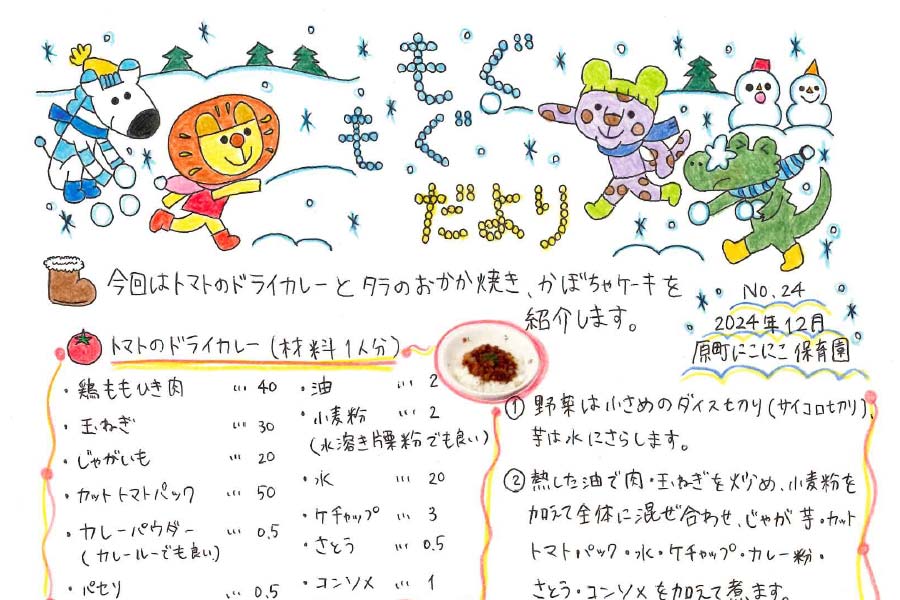 もぐ
もぐ
だより
今回はトマトのドライカレーとタラのおかか焼き、かぼちゃケーキを
紹介します。
NO.24
2024年12月
原町にこにこ保育園
トマトのドライカレー(材料1人分)
・鶏ももひき肉 … 40
・玉ねぎ … 30
・じゃがいも … 20
・カットトマトパック … 50
・カレーパウダー … 0.5
(カレールーでも良い)
・パセリ … 0.5
・油 … 2
・小麦粉 … 2
(水溶き片栗粉でも良い)
・水 … 20
・ケチャップ … 3
・さとう … 0.5
・コンソメ … 1
① 野菜は小さめのダイス切り(サイコロ切り)、
芋は水にさらします。
② 熱した油で肉・玉ねぎを炒め、小麦粉を
加えて全体に混ぜ合わせ、じゃが芋・カット
トマトパック・水・ケチャップ・カレー粉・
さとう・コンソメを加えて煮ます。